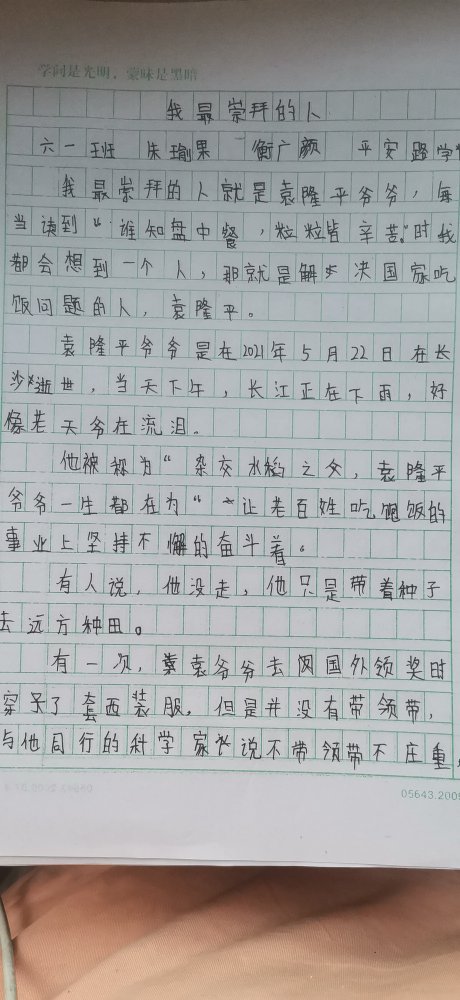 学问是光明，蒙昧是黑暗
我最崇拜的人
六一班 朱瑜果 衡广颜 平安路学
我最崇拜的人就是袁隆平爷爷，每
当读到“谁知盘中餐，粒粒皆辛苦。”时我
都会想到一个人，那就是解决国家吃
饭问题的人，袁隆平。
袁隆平爷爷是在2021年5月22日在长
沙逝世，当天下午，长江正在下雨，好
像老天爷在流泪。
他被称为“杂交水稻之父，袁隆平
爷爷一生都在为“让老百姓吃饱饭的
事业上坚持不懈的奋斗着。
有人说，他没走，他只是带着种子
去远方种田。
有一次，袁爷爷去国外领奖时
穿了套西装服，但是并没有带领带，
与他同行的科学家说不带领带不庄重，
05643.2009